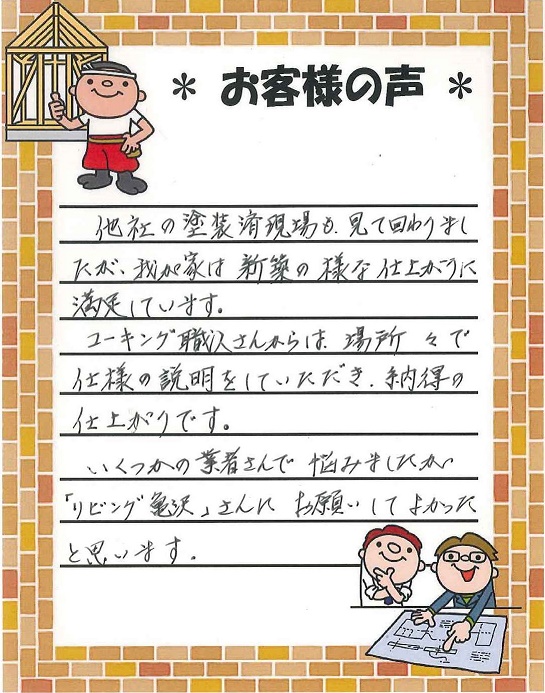 ＊ お客様の声 ＊
他社の塗装済現場も、見て回りまし
たが、我が家は新築の様な仕上がりに
満足しています。
コーキング職人さんからは、場所々で
仕様の説明をしていただき、納得の
仕上がりです。
いくつかの業者さんで悩みましたが
「リビング亀沢」さんにお願いしてよかった
と思います。